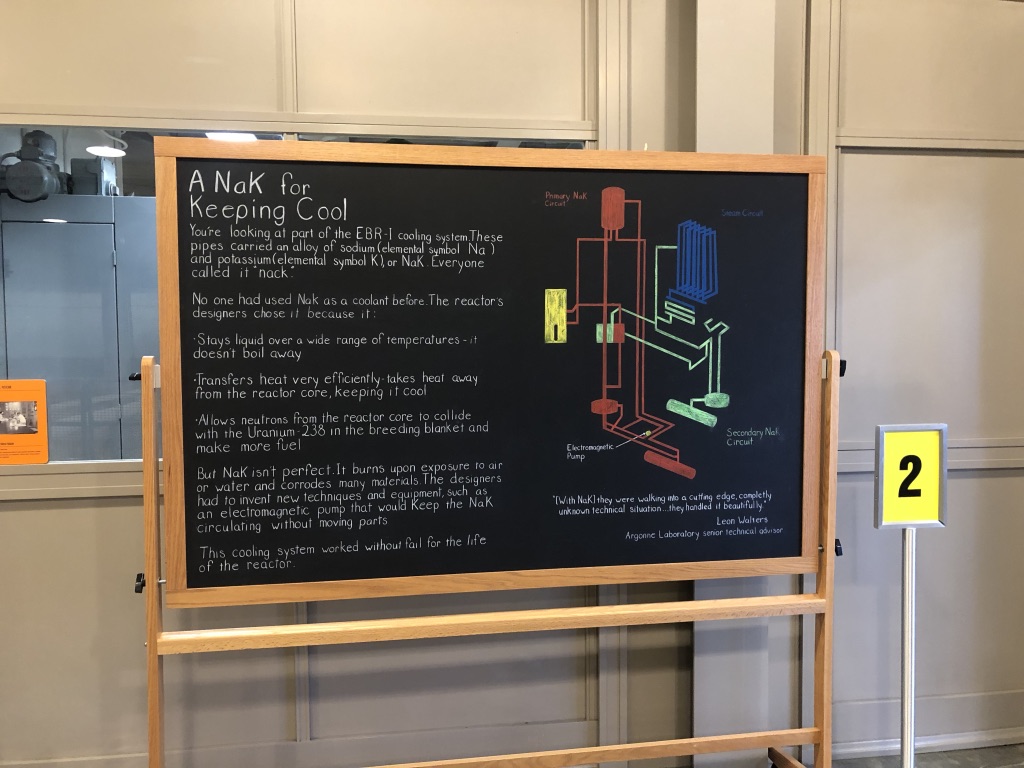 A NaK for
Keeping Cool
You're looking at part of the EBR-1 cooling system. These
pipes carried an alloy of sodium (elemental symbol Na)
and potassium (elemental symbol K), or NaK. Everyone
called it "nack."
No one had used Nak as a coolant before. The reactor's
designers chose it because it:
·Stays liquid over a wide range of temperatures - it
doesn't boil away
·Transfers heat very efficiently-takes heat away
from the reactor core, keeping it cool
·Allows neutrons from the reactor core to collide
with the Uranium-238 in the breeding blanket and
make more fuel
But NaK isn't perfect. It burns upon exposure to air
or water and corrodes many materials. The designers
had to invent new techniques and equipment, such as
an electromagnetic pump that would Keep the NaK
circulating without moving parts
This cooling system worked without fail for the life
of the reactor.
Primary NaK
Circuit
Steam Circuit
Secondary NaK
Circuit
Electromagnetic
Pump
"[With NaK] they were walking into a cutting edge, completly
unknown technical situation...they handled it beautifully."
Leon Walters
Argonne Laboratory senior technical advisor
2